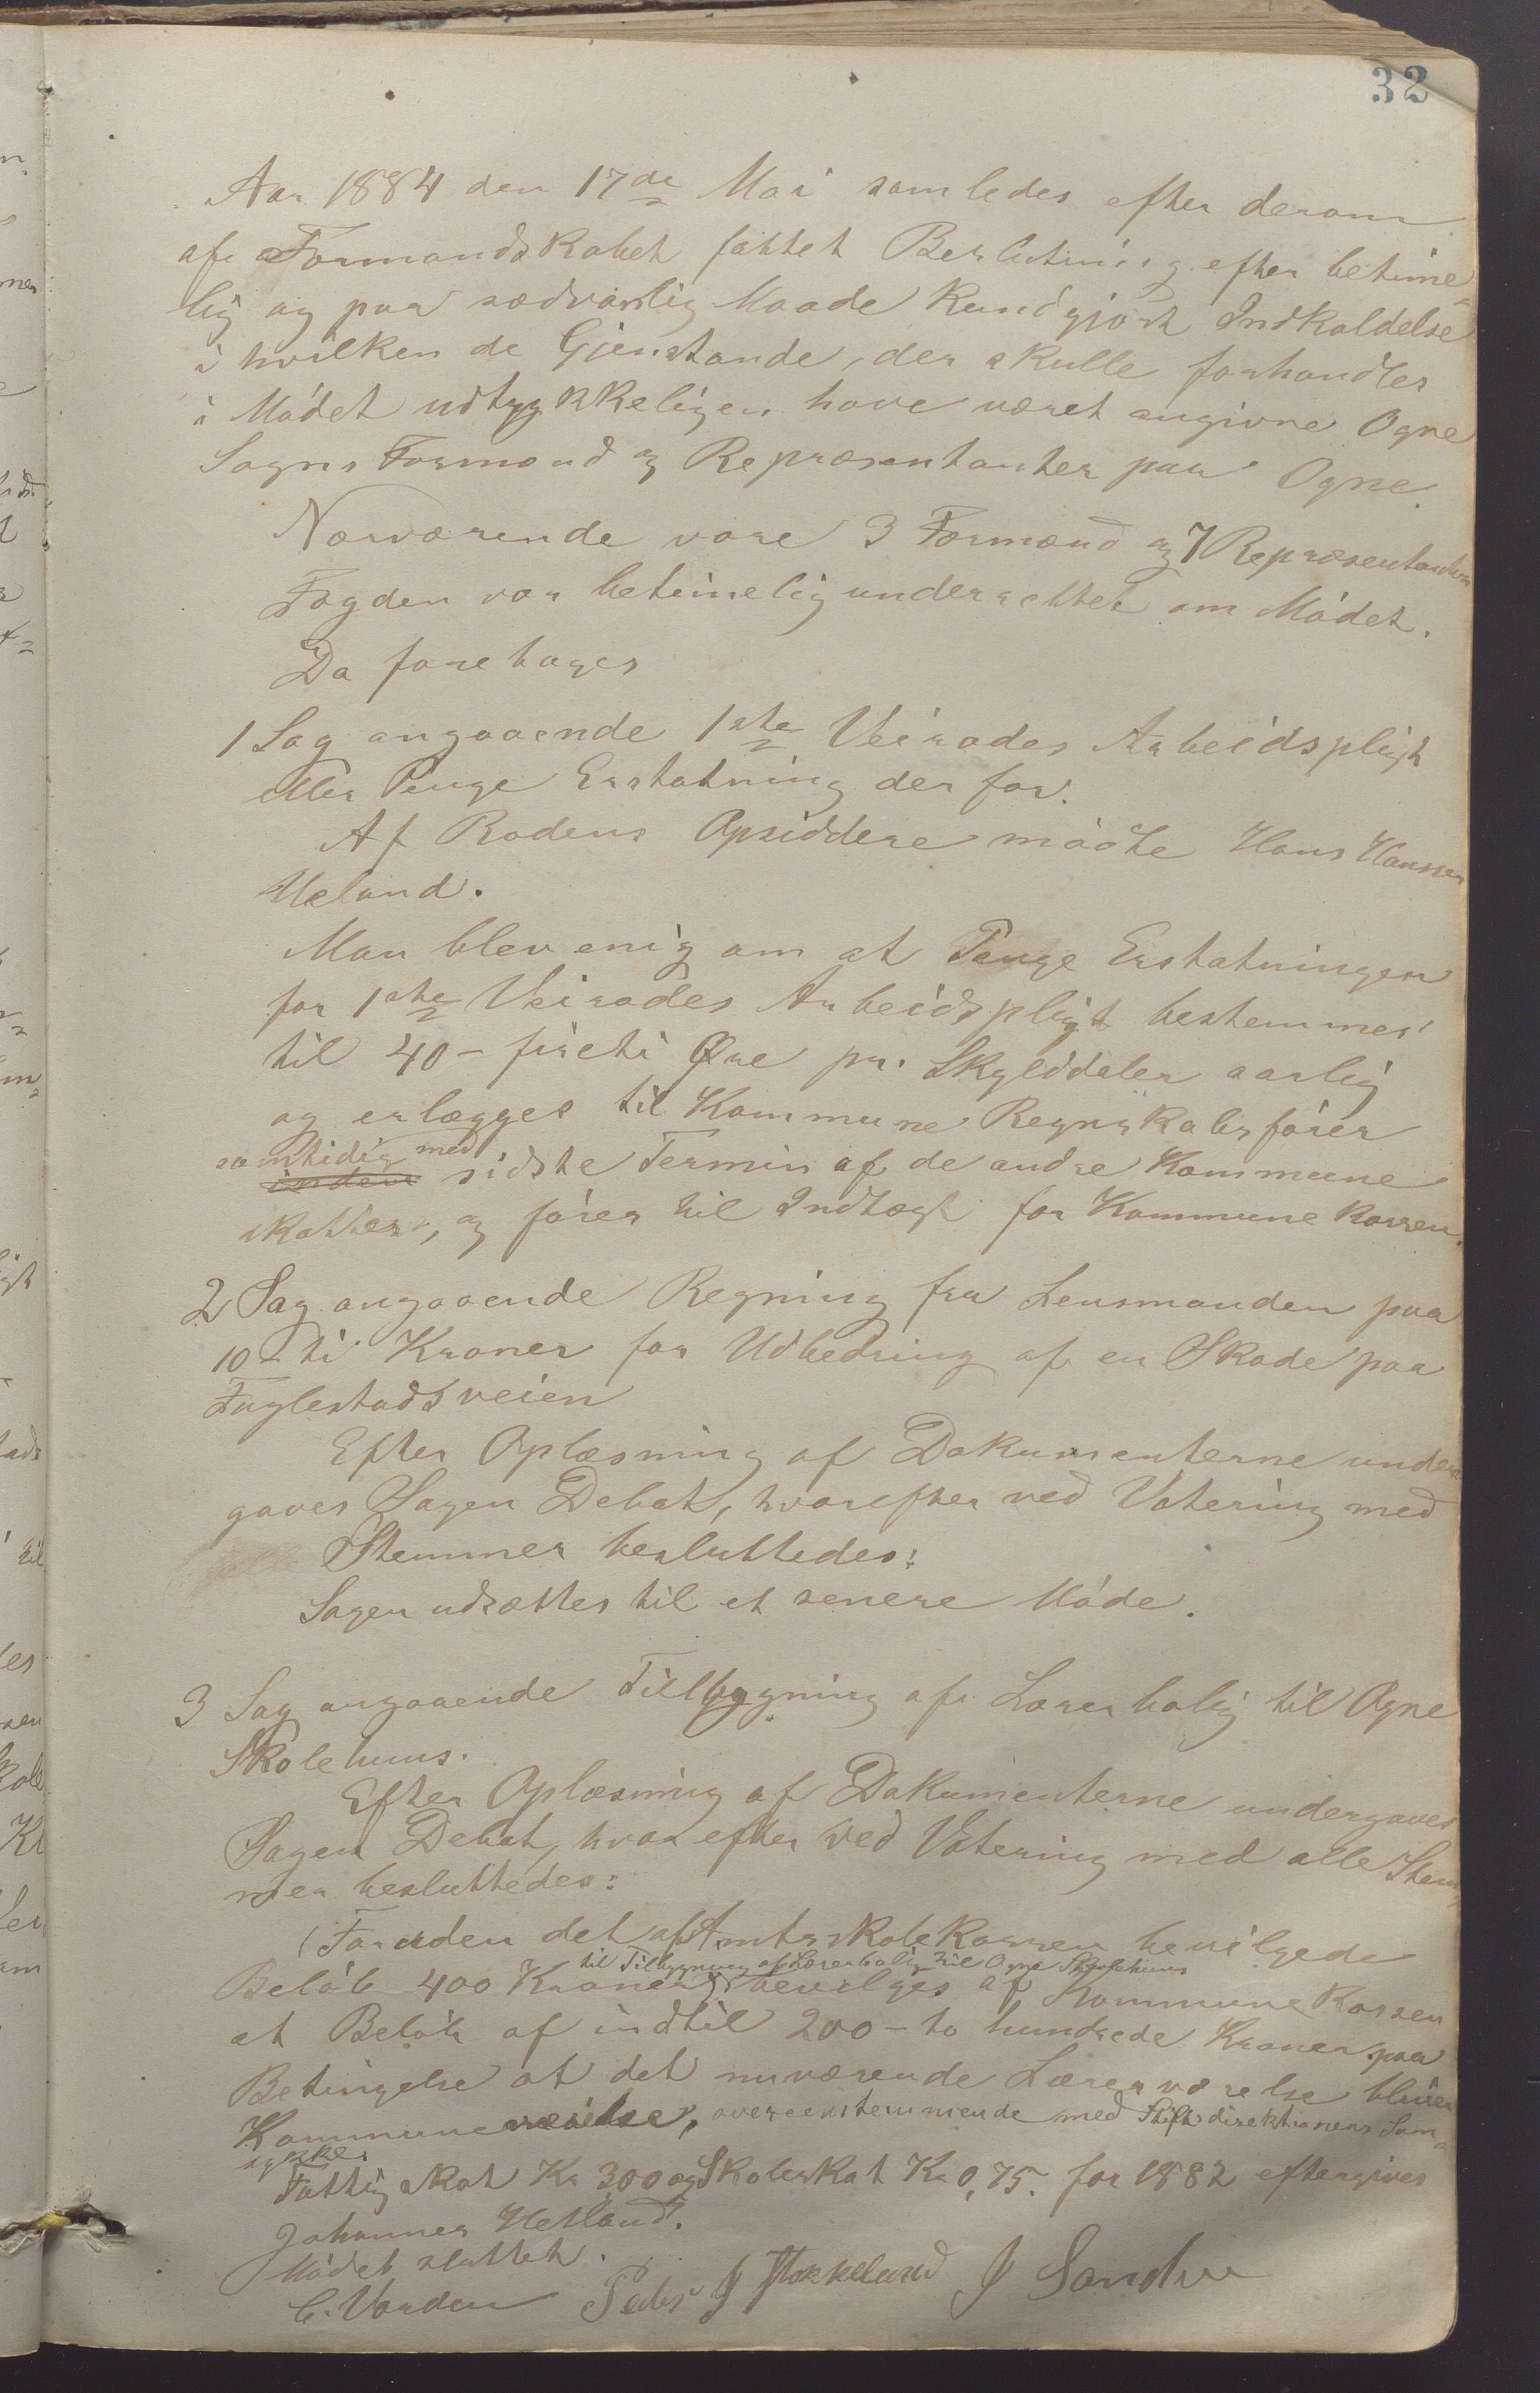 32
Aar 1884 den 17de Mai samledes efter derom
af Formandskabet fattet Beslutning efter betime=
lig og paa sædvanlig Maade Kundgjort Indkaldelse
i hvilken de Gjenstande, der skulle forhandles
i Mødet udtrykkeligen have været angivne Ogne
Sogns Formænd og Repræsentanter paa Ogne.
Nærværende vare 3 Formænd og 7 Repræsentanter
Fogden var betimelig underrettet om Mødet.
Da foretoges
1 Sag angaaende 1ste Veirodes Arbeidspligt
eller Penge Erstatning derfor.
Af Rodens Opsiddere mødte Hans Hanssen
Ueland.
Man blev enig om at Penge Erstatningen
for 1ste Veirodes Arbeidspligt bestemmes
til 40 - fireti Øre pr. Skylddaler aarlig
og erlægges til Kommune Regnskabsfører
samtidig med
inden sidste Termin af de andre Kommune
skatter, og føres til Indtægt for Kommune Kassen.
2 Sag angaaende Regning fra Lensmanden paa
10 - ti Kroner for Udbedring af en Skade paa
Fuglestadsveien
Efter Oplæsning af Dokumenterne under
gaves Sagen Debat, hvorefter ved Votering med
Stemmer besluttedes:
Sagen udsættes til et senere Møde.
3 Sag angaaende Tilbygning af Lærerbolig til Ogne
Skolehuus.
Efter Oplæsning af Dokumenterne undergaves
Sagen Debat, hvorefter ved Votering med alle Stem=
mer besluttedes:
(Foruden det af Amtsskolekassen bevilgede
til Tilbygning af Lærerbolig til Ogne Skolehuus
Beløb 400 Kroner) bevilges af Kommune Kassen
et Beløb af indtil 200 - to hundrede Kroner paa
Betingelse at det nuværende Lærerværelse bliver
Kommuneværelse, overeenstemmende med Stiftsdirektionens Sam=
tykke.
Fattigskat Kr 3,00 og Skoleskat Kr 0,75. for 1882 eftergives
Johannes Hetland.
Mødet sluttet.
C. Varden Peder J Stokkeland J Sandve